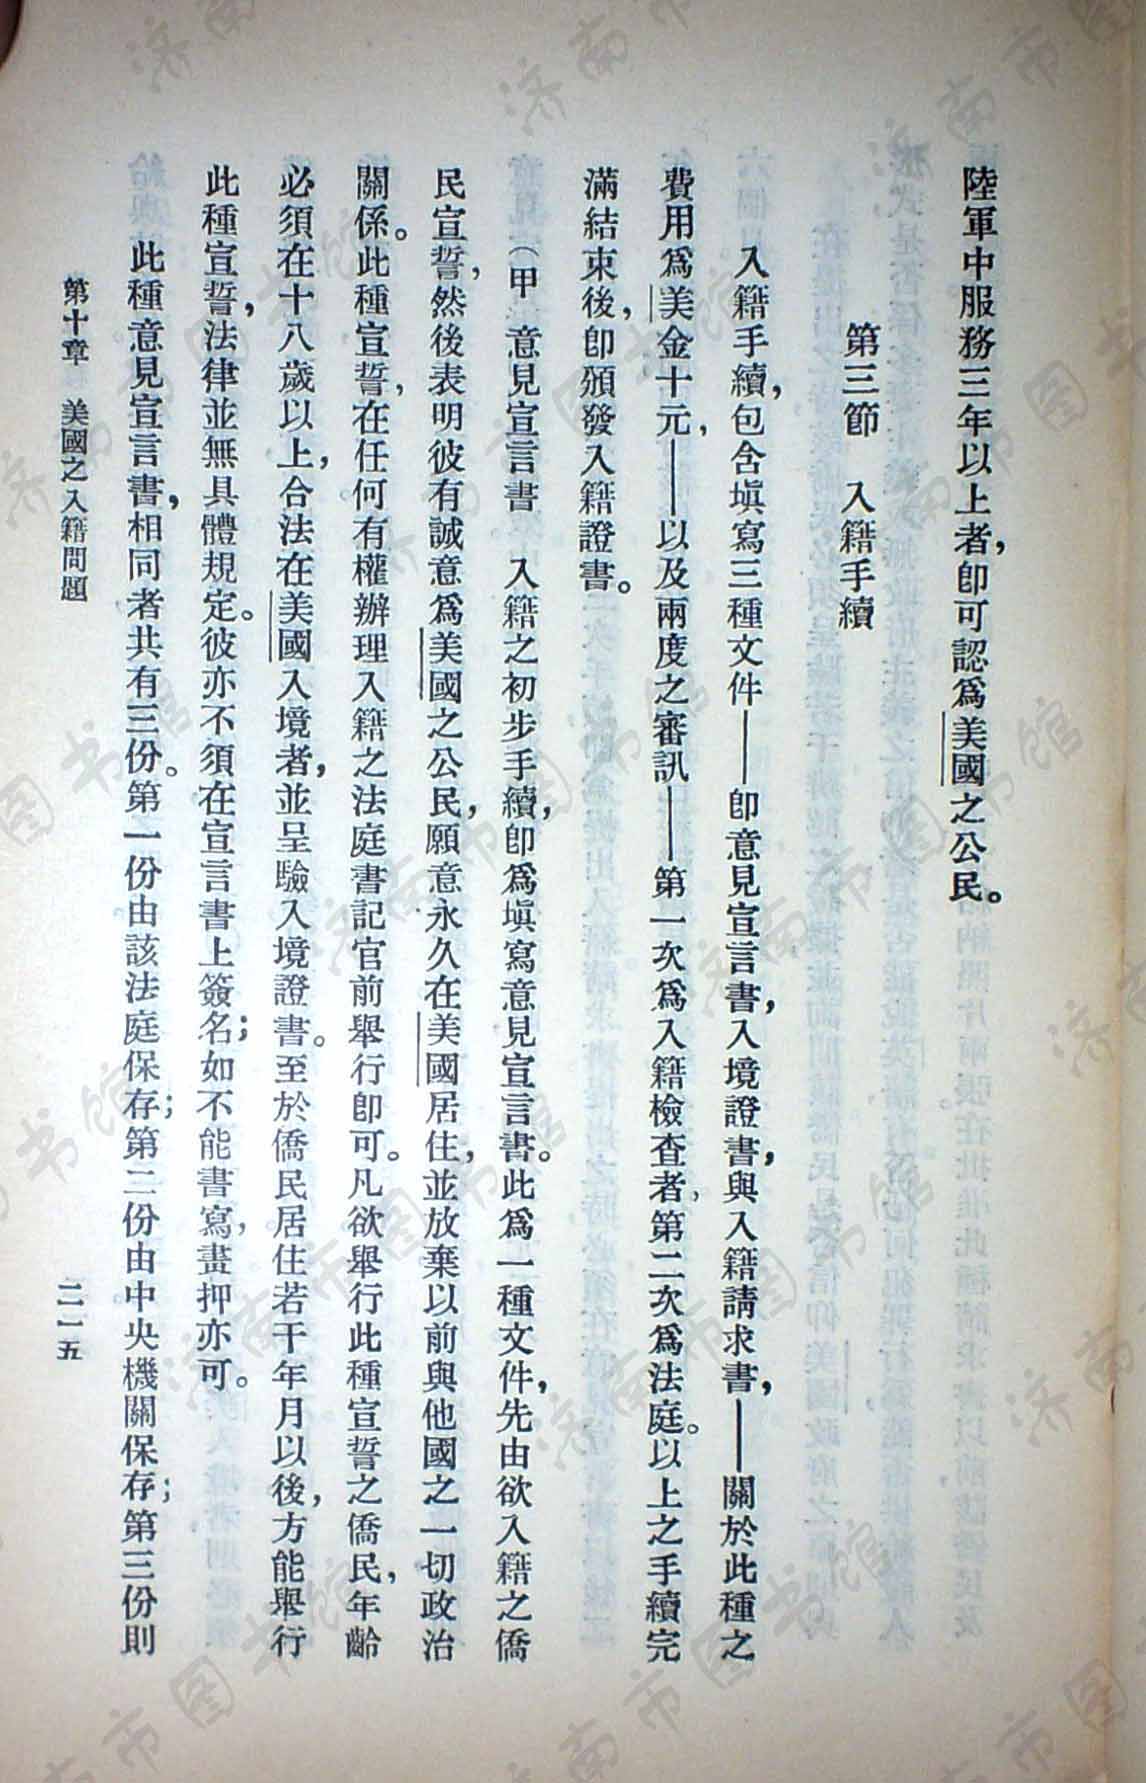 陸軍中服務三年以上者，卽可認爲美國之公民。
第三節　入籍手續
入籍手續，包含塡寫三種文件——卽意見宣言書，入境證書，與入籍請求書，——關於此種之
費用爲美金十元，——以及兩度之審訊——第一次爲入籍檢查者，第二次爲法庭。以上之手續完
滿結束後，卽頒發入籍證書。
（甲　意見宣言書　入籍之初步手續，卽爲塡寫意見宣言書。此爲一種文件，先由欲入籍之僑
民宣誓，然後表明彼有誠意爲美國之公民，願意永久在美國居住，並放棄以前與他國之一切政治
關係。此種宣誓，在任何有權辦理入籍之法庭書記官前舉行卽可。凡欲舉行此種宣誓之僑民，年齡
必須在十八歲以上，合法在美國入境者，並呈驗入境證書。至於僑民居住若干年月以後，方能舉行
此種宣誓，法律並無具體規定。彼亦不須在宣言書上簽名；如不能書寫，畫押亦可。
此種意見宣言書，相同者共有三份。第一份由該法庭保存；第二份由中央機關保存；第三份則
第十章　美國之入籍問題
二一五
济南市图书馆